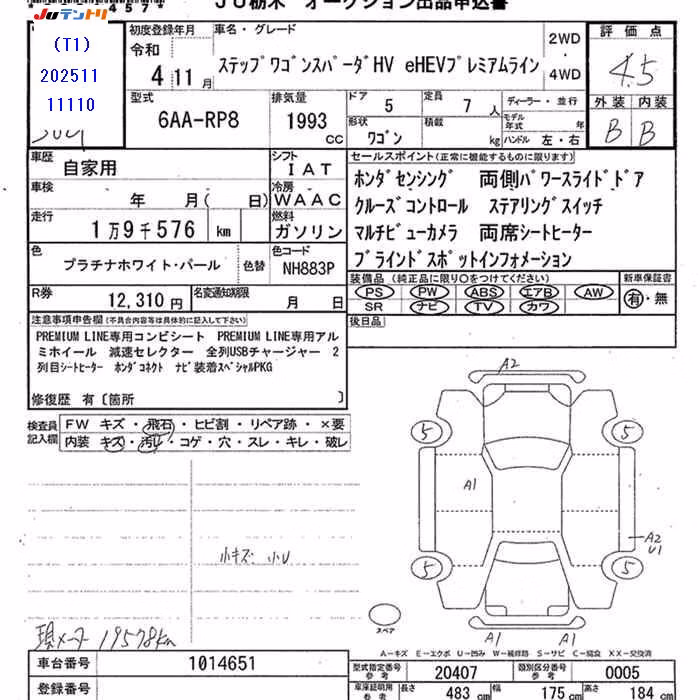 457*
JU栃木 オークション出品申込書
JUテントリ
(T1)
202511
11110
初度登録年月
令和
4年11月
車名・グレード
ステップワゴンスパーダHV eHEVプレミアムライン
2WD
・
4WD
評価点
4.5
外装 内装
B B
型式
6AA-RP8
排気量
1993 cc
ドア 5
定員 7 人
形状 ワゴン
積載 kg
ディーラー・並行
モデル年式 年
ハンドル 左・右
車歴 自家用
シフト IAT
車検 年 月( 日)
冷房 WAAC
走行 1万9千576 km
燃料 ガソリン
色 プラチナホワイト・パール
色替
色コード NH883P
R券 12,310円
名変通知期限 月 日
セールスポイント(正常に機能するものに限ります)
ホンダセンシング 両側パワースライドドア
クルーズコントロール ステアリングスイッチ
マルチビューカメラ 両席シートヒーター
ブラインドスポットインフォメーション
装備品(純正品に限り○をつけてください)
PS PW ABS エアB AW
SR ナビ TV カワ
新車保証書
有・無
後日品
注意事項申告欄(不具合内容等は具体的に記入して下さい)
PREMIUM LINE専用コンビシート PREMIUM LINE専用アル
ミホイール 減速セレクター 全列USBチャージャー 2
列目シートヒーター ホンダコネクト ナビ装着スペシャルPKG
修復歴 有〔箇所 〕
検査員記入欄
FW キズ・飛石・ヒビ割・リペア跡・×要
内装 キズ・汚れ・コゲ・穴・スレ・キレ・破レ
小キズ 小U
現メーター 19578km
A2
5 5
A1
A2
U1
5 5
スペア
A1 A1
A-キズ E-エクボ U-凹み W-補修跡 S-サビ C-腐食 XX-交換済
車台番号 1014651
登録番号
型式指定番号参考 20407
類別区分番号参考 0005
車庫証明用参考
長さ 483 cm
幅 175 cm
高さ 184 cm